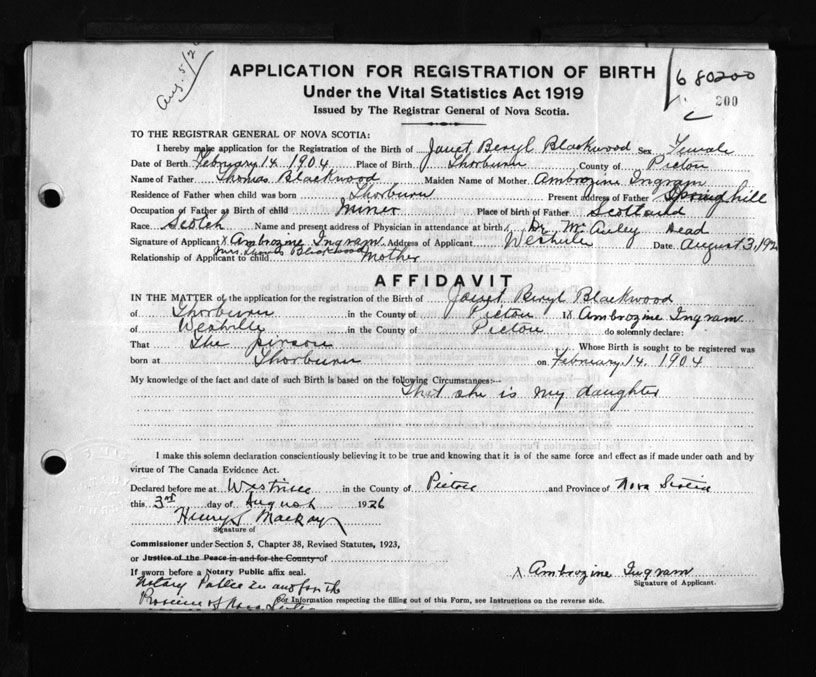 Aug. 5/26
APPLICATION FOR REGISTRATION OF BIRTH
680200
Under the Vital Statistics Act 1919
200
Issued by The Registrar General of Nova Scotia.
TO THE REGISTRAR GENERAL OF NOVA SCOTIA:
I hereby make application for the Registration of the Birth of Janet Beryl Blackwood Sex Female
Date of Birth February 14. 1904 Place of Birth Thorburn County of Pictou
Name of Father Thomas Blackwood Maiden Name of Mother Ambrozine Ingram
Residence of Father when child was born Thorburn Present address of Father Springhill
Occupation of Father at Birth of child Miner Place of birth of Father Scotland
Race Scotch Name and present address of Physician in attendance at birth Dr. McAuley Dead
Signature of Applicant X Ambrozine Ingram Address of Applicant Westville Date August 3, 192
Mrs Thomas Blackwood
Relationship of Applicant to child Mother
AFFIDAVIT
IN THE MATTER of the application for the registration of the Birth of Janet Beryl Blackwood
of Thorburn in the County of Pictou I X Ambrozine Ingram
of Westville in the County of Pictou do solemnly declare:
That The person Whose Birth is sought to be registered was
born at Thorburn on February 14. 1904
My knowledge of the fact and date of such Birth is based on the following Circumstances:—
That she is my daughter
I make this solemn declaration conscientiously believing it to be true and knowing that it is of the same force and effect as if made under oath and by
virtue of The Canada Evidence Act.
Declared before me at Westville in the County of Pictou and Province of Nova Scotia
this 3rd day of August 1926
Henry S Mackay
Signature of
Commissioner under Section 5, Chapter 38, Revised Statutes, 1923,
or Justice of the Peace in and for the County of
If sworn before a Notary Public affix seal.
X Ambrozine Ingram
Signature of Applicant.
Notary Public in and for the
Province of Nova Scotia
For Information respecting the filling out of this Form, see Instructions on the reverse side.